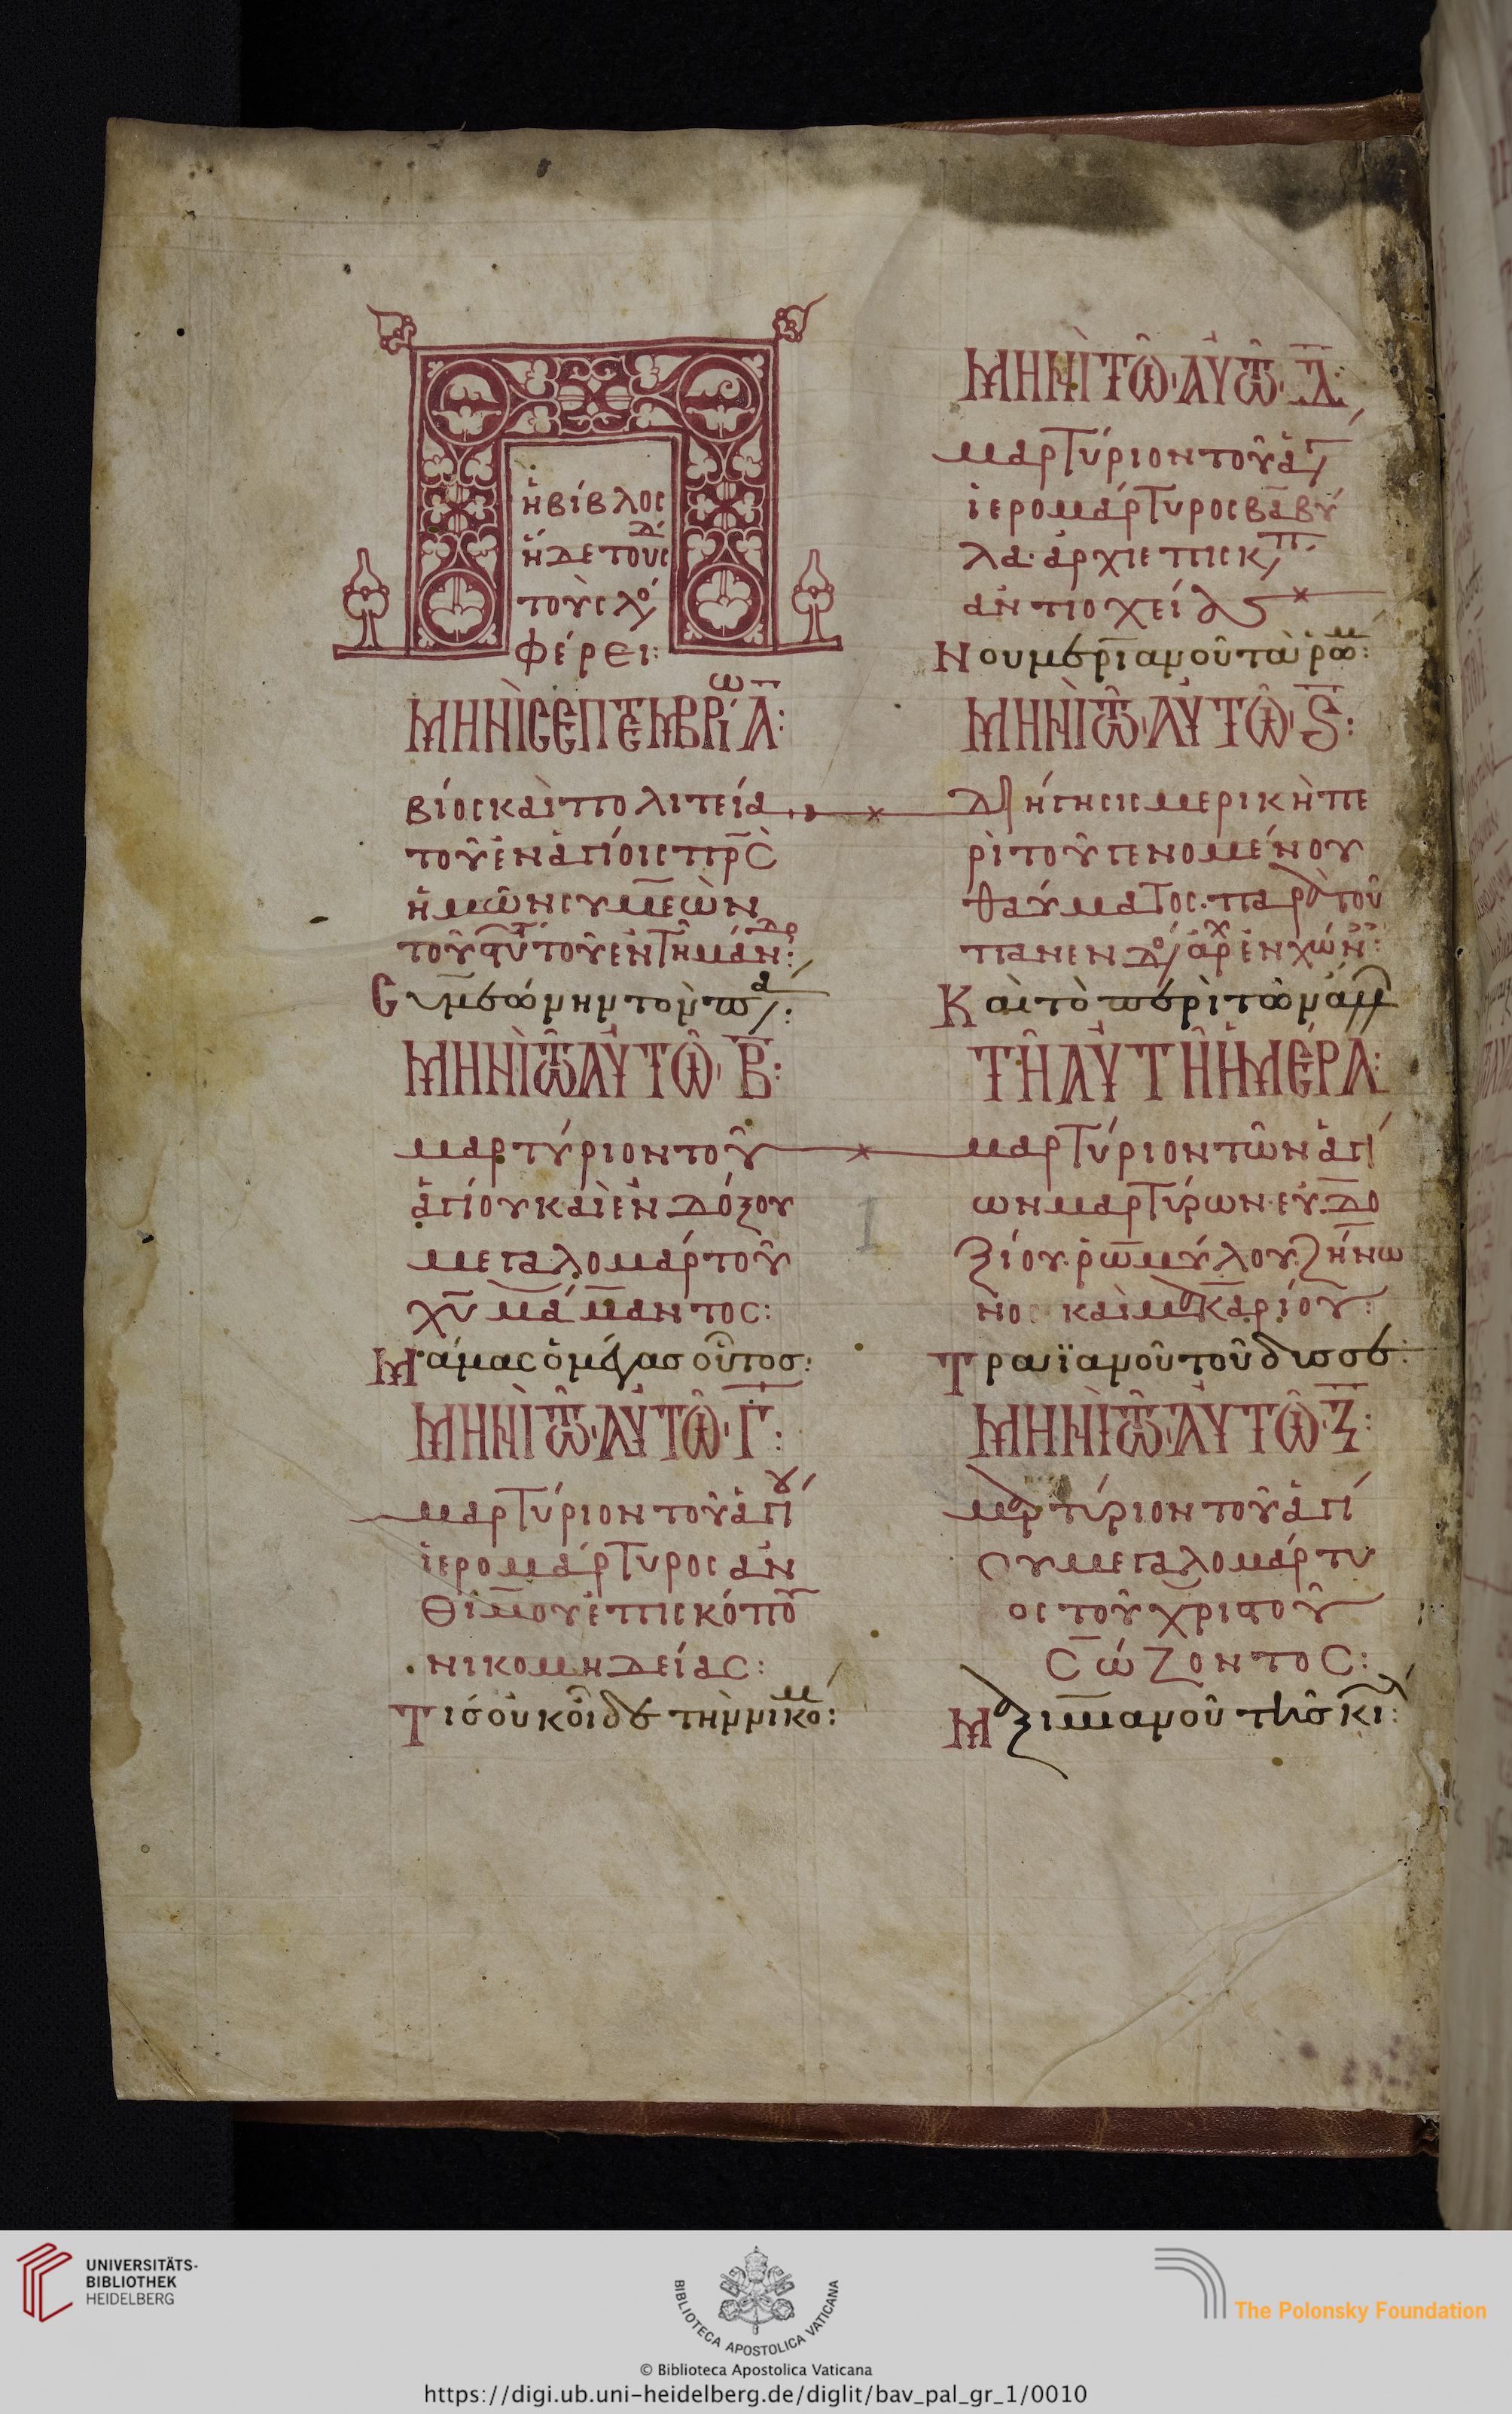 ἡ βίβλος
ἥδε τοὺς
τοὺς λό
φέρει:
ΜΗΝῚ ϹΕΠΤΕΜΒΡΙῼ Α:
βίος καὶ πολιτεία
τοῦ ἐν ἁγίοις πρ̅ς
ἡμῶν συμεὼν
τοῦ στυ τοῦ ἐν τῆ μάνδρ:
ΜΗΝῚ ΤΩ͂ ΑΥ̓ΤΩ͂ Β:
μαρτύριον τοῦ
ἁγίου καὶ ἐνδόξου
μεγαλομάρτ τοῦ
χυ̅ μάμαντος:
Μάμας ὁ μέγας οὗτος:
ΜΗΝῚ ΤΩ͂ ΑΥ̓ΤΩ͂ Γ:
μαρτύριον τοῦ ἁγίου
ἱερομάρτυρος ἀν
θίμου ἐπισκόπου
νικομηδείας:
Τίς οὐκ οἶδε τὴν νικο:
ΜΗΝῚ ΤΩ͂ ΑΥ̓ΤΩ͂ Δ:
μαρτύριον τοῦ ἁγ
ἱερομάρτυρος βαβύ
λα ἀρχιεπισκπ
ἀντιοχείας
Νουμεριανοῦ τῶν ῥωμ:
ΜΗΝῚ ΤΩ͂ ΑΥ̓ΤΩ͂ Ϛ:
διήγησις μερικὴ πε
ρὶ τοῦ γενομένου
θαύματος παρὰ τοῦ
πανενδο ἀρχ ἐν χών:
Καὶ τὸ περὶ τῶν
ΤΗ͂ ΑΥ̓ΤΗ͂ ἩΜΈΡΑ:
μαρτύριον τῶν ἁγί
ων μαρτύρων εὐδο
ξίου ῥωμύλου ζήνω
νος καὶ μακαρίου:
Τραϊανοῦ τοῦ δυσσε:
ΜΗΝῚ ΤΩ͂ ΑΥ̓ΤΩ͂ Ζ:
μαρτύριον τοῦ ἁγί
ου μεγαλομάρτυ
ος τοῦ χριστοῦ
ϲώζοντοϲ:
Μαξιμιανοῦ τῆς κι:
1
UNIVERSITÄTS-
BIBLIOTHEK
HEIDELBERG
BIBLIOTECA APOSTOLICA VATICANA
The Polonsky Foundation
© Biblioteca Apostolica Vaticana
https://digi.ub.uni-heidelberg.de/diglit/bav_pal_gr_1/0010